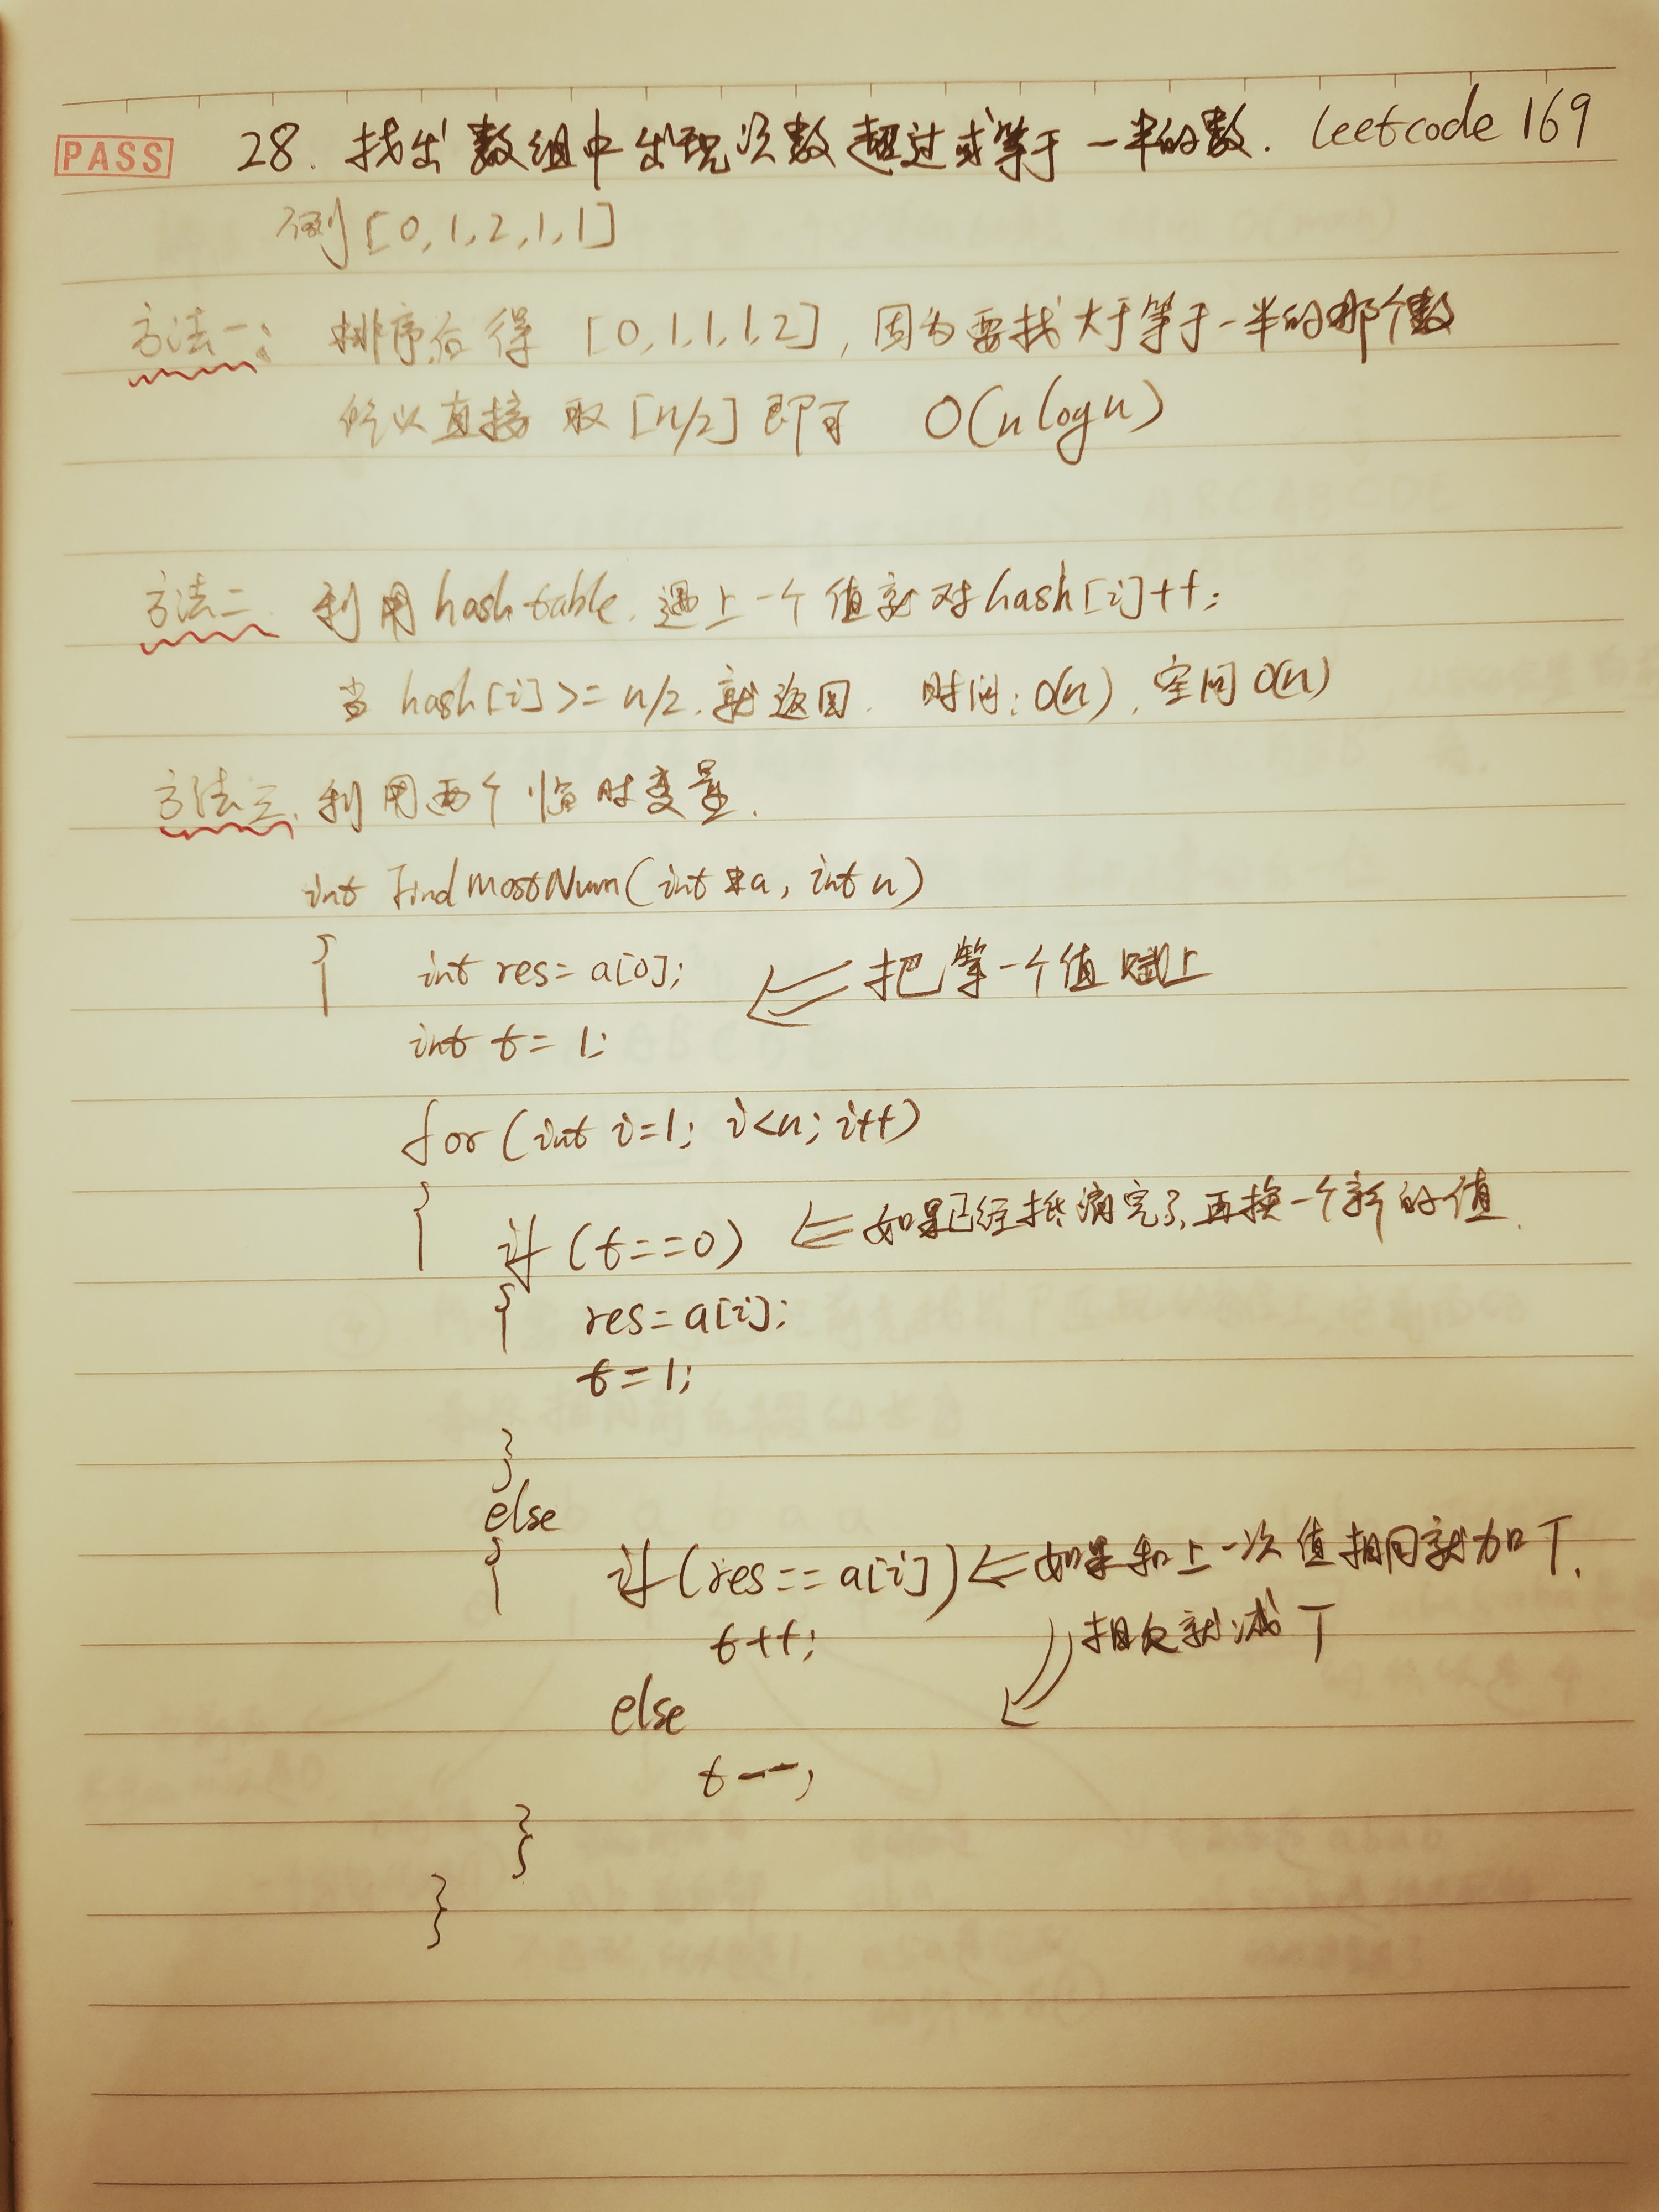 PASS 28. 找出数组中出现次数超过或等于一半的数. leetcode 169
例 [0,1,2,1,1]
方法一: 排序后得 [0,1,1,1,2], 因为要找大于等于一半的那个数
所以直接取[n/2]即可 O(nlogn)
方法二 利用hashtable. 遇上一个值就对hash[i]++;
当 hash[i]>=n/2.就返回. 时间:O(n), 空间O(n)
方法三. 利用两个临时变量.
int findMostNum(int *a, int n)
{ int res=a[0]; ⇐ 把第一个值赋上
int t=1;
for(int i=1; i<n; i++)
{ if (t==0) ⇐ 如果已经抵消完了,再换一个新的值.
{ res=a[i];
t=1;
}
else
{ if(res==a[i]) ⇐ 如果和上一次值相同就加T.
t++; 相反就减T
else
t--;
}
}